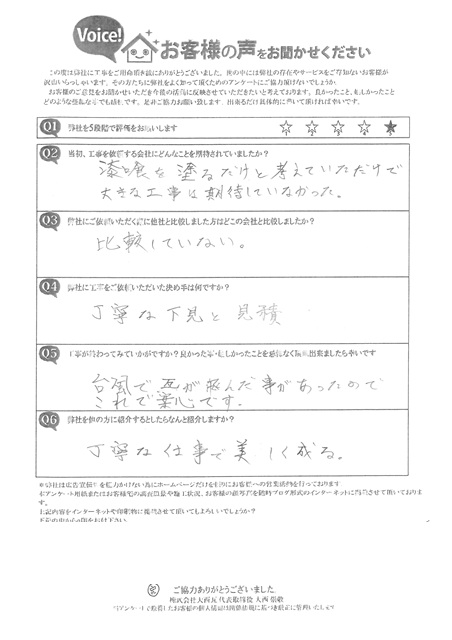 Voice!
お客様の声をお聞かせください
この度は弊社に工事をご用命頂き誠にありがとうございました。世の中には弊社の存在やサービスをご存知ないお客様が
沢山いらっしゃいます。その方たちに弊社をよく知って頂くためのアンケートにご協力頂けないでしょうか。
お客様のご意見をお聞かせいただき今後の活動に反映させていただきたいと考えております。良かったこと、悲しかったこと
どのような些細な事でも結構です。是非ご協力お願い致します。出来るだけ具体的に書いて頂ければ幸いです。
Q1 弊社を5段階で評価をお願いします
Q2 当初、工事を依頼する会社にどんなことを期待されていましたか?
漆喰を塗るだけと考えていただけで
大きな工事は期待していなかった。
Q3 弊社にご依頼いただく前に他社と比較しました方はどこの会社と比較しましたか?
比較していない。
Q4 弊社に工事をご依頼いただいた決め手は何ですか?
丁寧な下見と見積
Q5 工事が終わってみていかがですか?
台風で瓦が飛んだ事があったので
これで安心です。
Q6 弊社を他の方に紹介するとしたらなんと紹介しますか?
丁寧な仕事で美しく成る。
上記内容をインターネットや印刷物に掲載させて頂いてもよろしいでしょうか?
ご協力ありがとうございました
株式会社大西瓦 代表取締役 大西